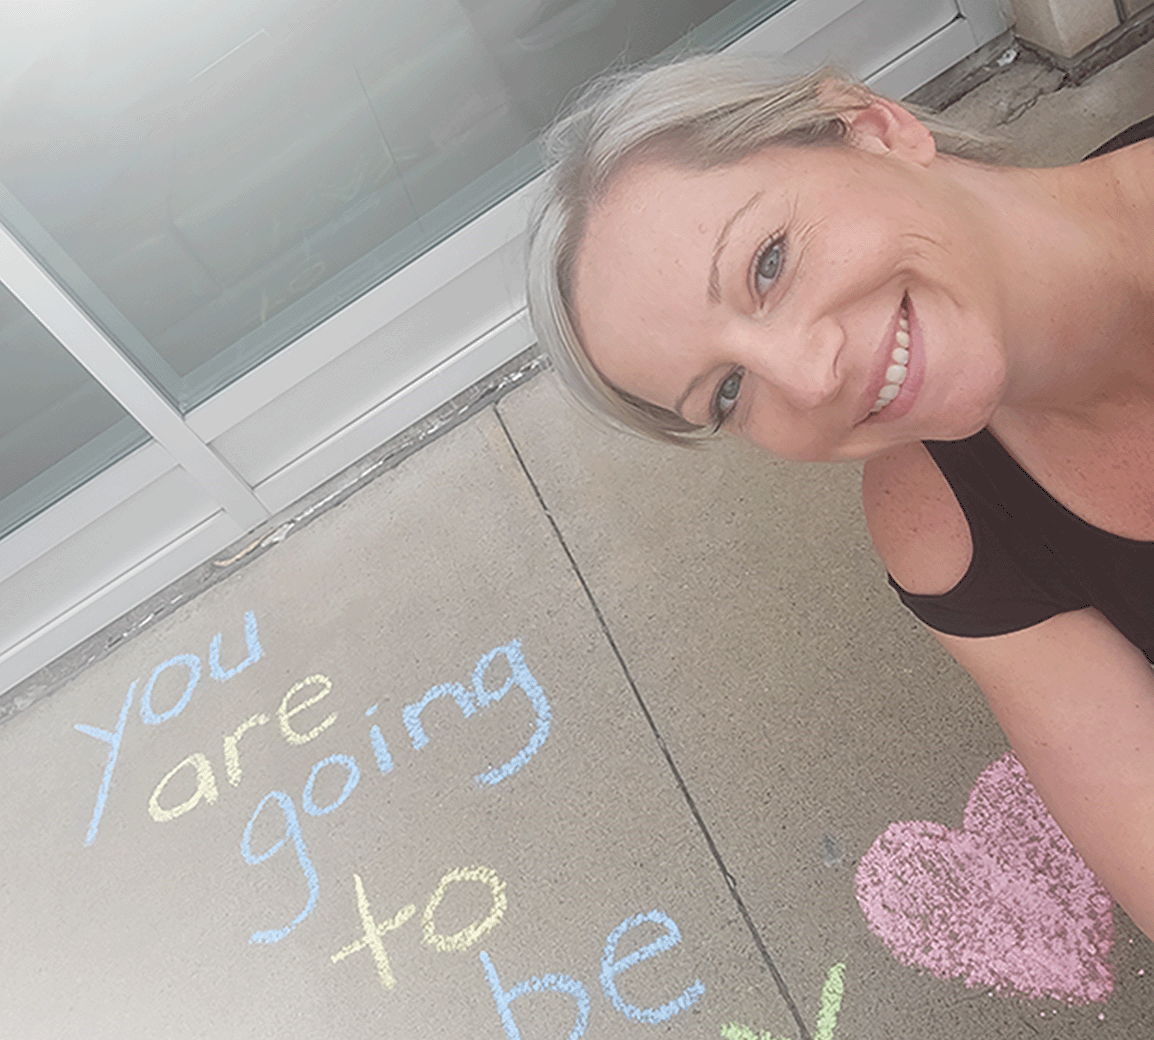 you
are
going
to
be